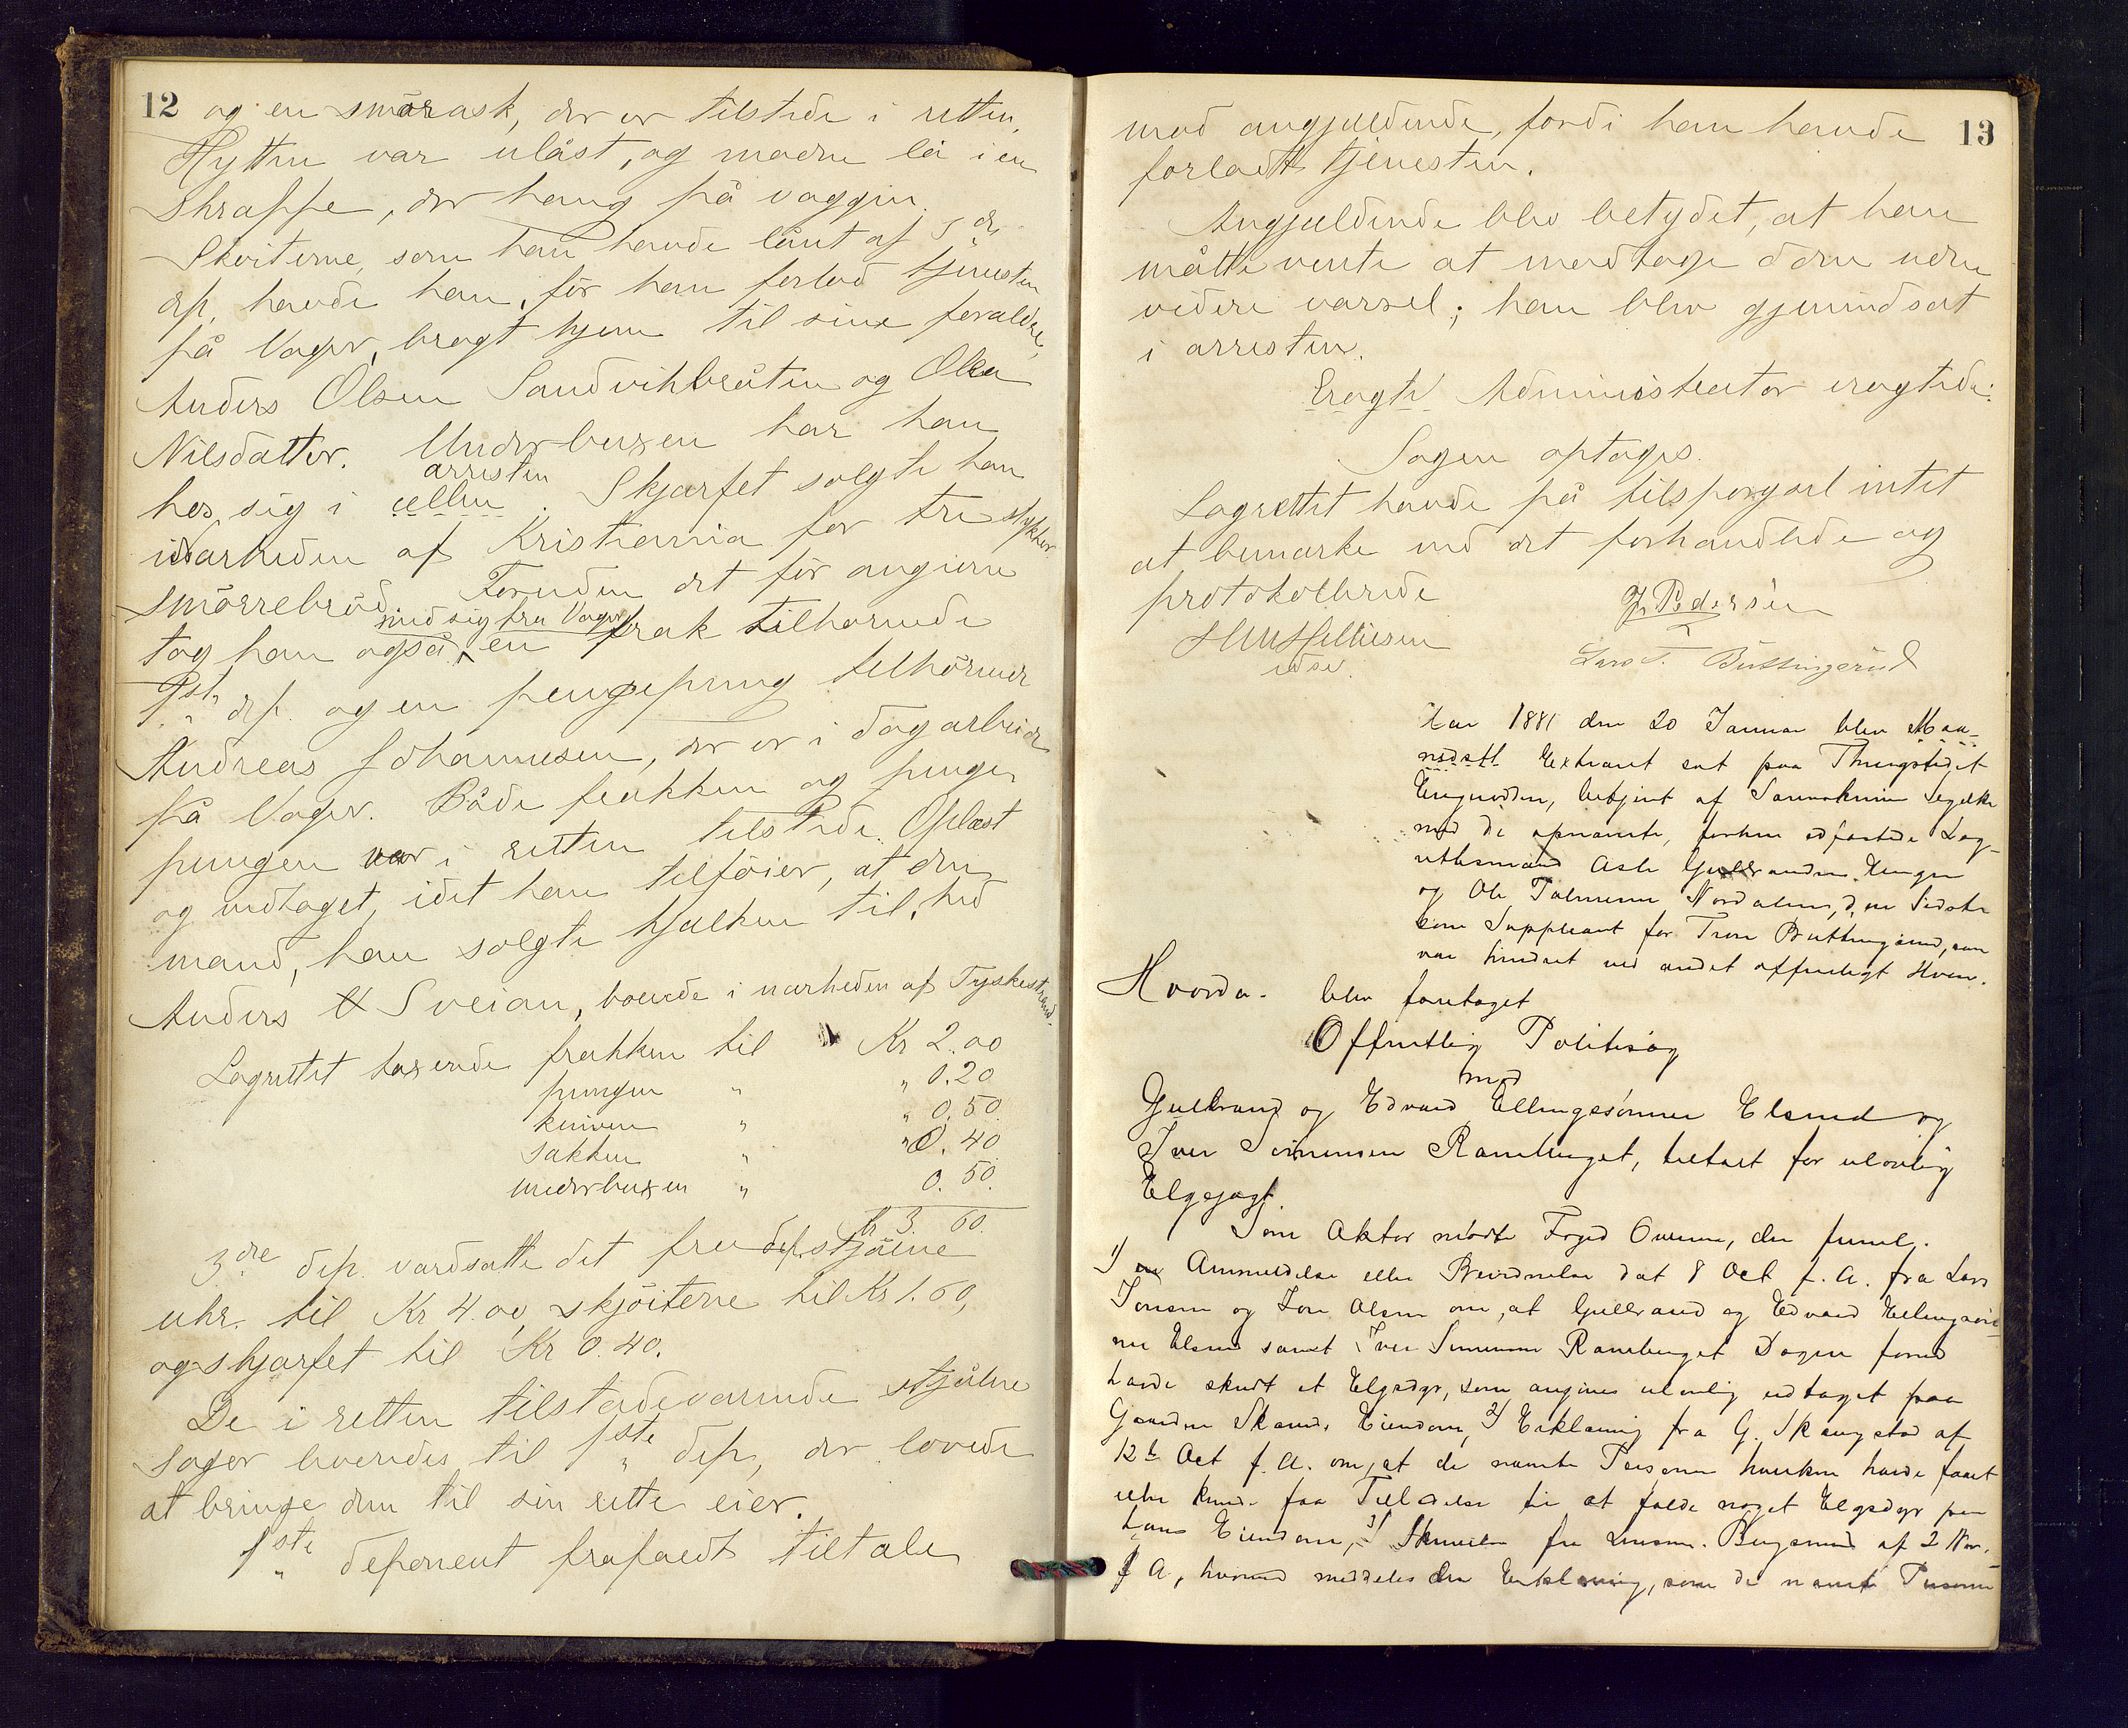 12 og en smörask, der er tilstede i retten,
Hytten var ulåst, og maden lå i en
Skrappe, der hang på væggen.
Skoiterne, som han havde lånt af 5 de
dp, havde han, för han forlod tjenesten
på Vager, bragt hjem til sine forældre,
Anders Olsen Sandvikbråten og Olea
Nilsdatter. Underbuxen har han
hos sig i cellen arresten. Skjærfet solgte han
i nærheden af Kristiania for tre stykker
smörrebröd. Foruden det för angivne
tog han også med sig fra Vager en frak tilhørende
1ste dp. og en pengepung tilhörende
Andreas Johannesen, der er i dag arbeider
på Vager. Både frakken og penge
pungen var i retten tilstede. Oplæst
og vedtaget, idet han tilföier, at den
mand, han solgte kjælken til, hed
Anders Sveian, boende i nærheden af Tyskestrand.
Lagrettet taxerede frakken til Kr 2.00
pungen " " 0.20
kniven " " 0.50
sækken " " 0.40
underbuxen " 0.50.
Kr 3. 60.
3dre dep. værdsatte det fra dep. stjålne
uhr til Kr 4.00, skjöiterne til Kr 1.60,
og skjærfet til Kr 0.40.
De i retten tilstedeværende stjålne
sager leveredes til 1ste dep, der lovede
at bringe dem til sin rette eier.
1ste deponent frafaldt tiltale
mod angjældende, fordi han havde 13
forladt tjenesten.
Angjældende blev betydet, at han
måtte vente at modtage dom uden
videre varsel; han blev gjenindsat
i arresten.
Eragte Administrator eragtede:
Sagen optages.
Lagrettet havde på tilspørgsel intet
at bemærke ved det forhandlede og
protokollerede J. Pedersen
Lars T. Buttingsrud
Aar 1881 den 20 Januar blev Maa-
nedstl Extraret sat paa Thingstedet
betjent af Sorenskriver Segelcke
med de opnævnte, forhen edfæstede Lag-
rettesmænd Asle Gulbrandsen Hungen
og Ole Nordalen, den Sidste
som Suppleant for Tron Buttingsrud, som
var hindret ved andet offentligt Hverv.
Hvorda- blev foretaget
Offentlig Politisag
mod
Gulbrand og Edvard Ellingssønner Elsrud og
Iver Simensen Ramberget, tiltalt for ulovlig
Elgsjagt.
Som Aktor mødte Foged Ouren, der freml.
1) en Anmeldelse eller Bevidnelse dat 8 Oct f. A. fra Lars
Jonsen og Lars Olsen om, at Gulbrand og Edvard Ellingssøn-
ner Elsrud samt Iver Simensen Ramberget Dagen forud
havde skudt et Elgsdyr, som angives ulovlig udtaget paa
Gaarden Skarud Eiendom, 2) Erklæring fra G. Skaugstad af
12te Oct f. A. om, at de nævnte Personer hverken havde faaet
eller kunde faa Tilladelse til at fælde noget Elgsdyr paa
hans Eiendom, 3) Skrivelse fra Lensm. Bergsrud af 2 Nov.
f A, hvorved meddeles den Erklæring, som de nævnte Personer